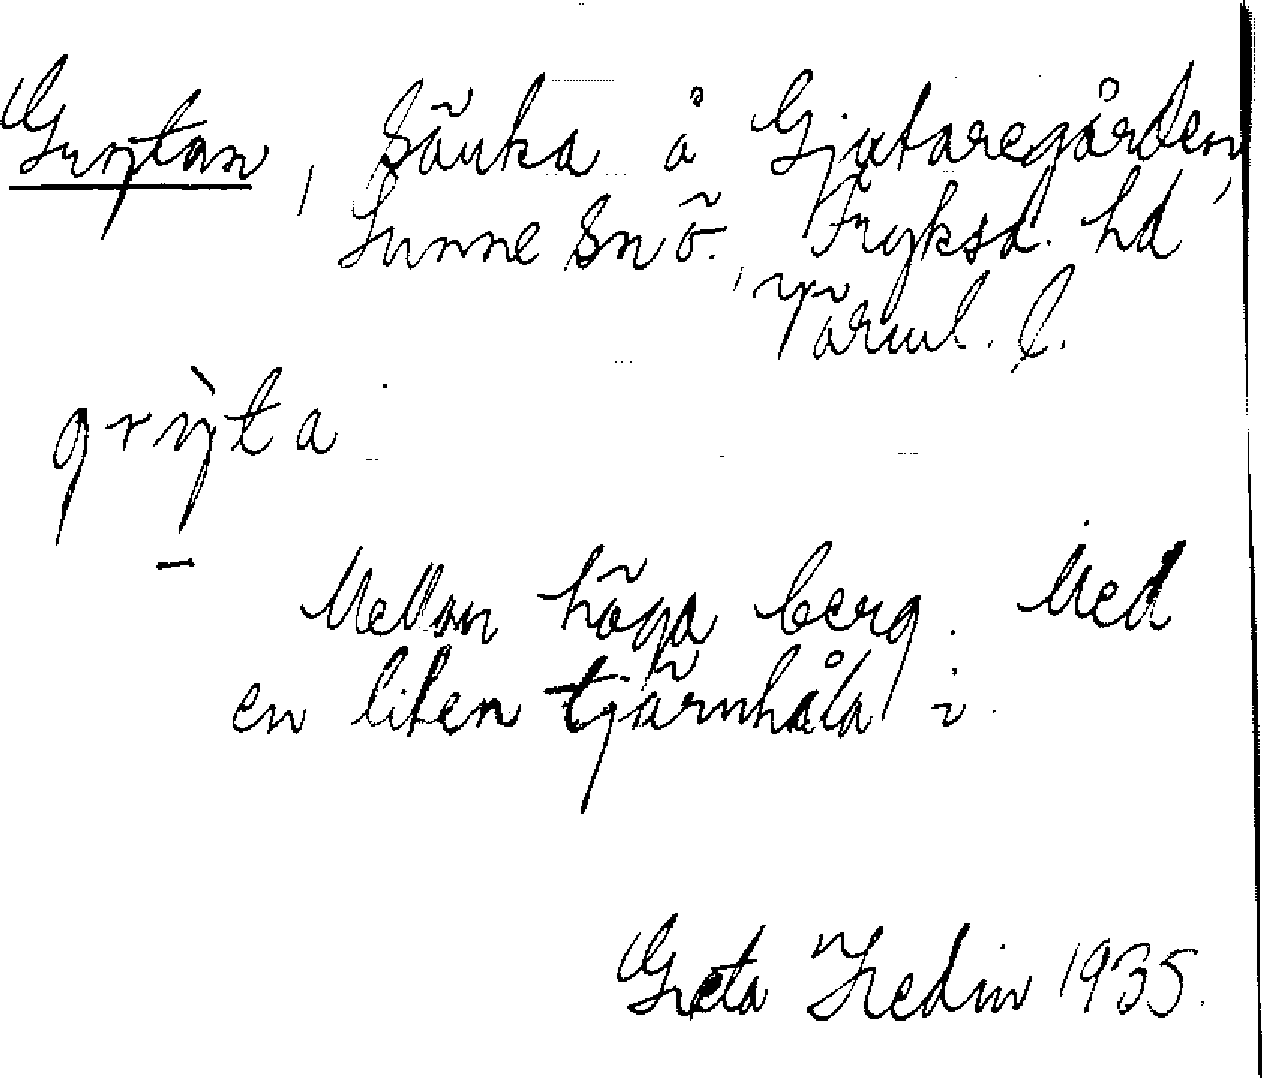 Grytan, Sänka å Gjutaregården,
Sunne Sn ö., Fryksd. hd
Värml. l.
grỳta
Mellan höga berg. Med
en liten tjärnhåla i.
Greta Hedin 1935.